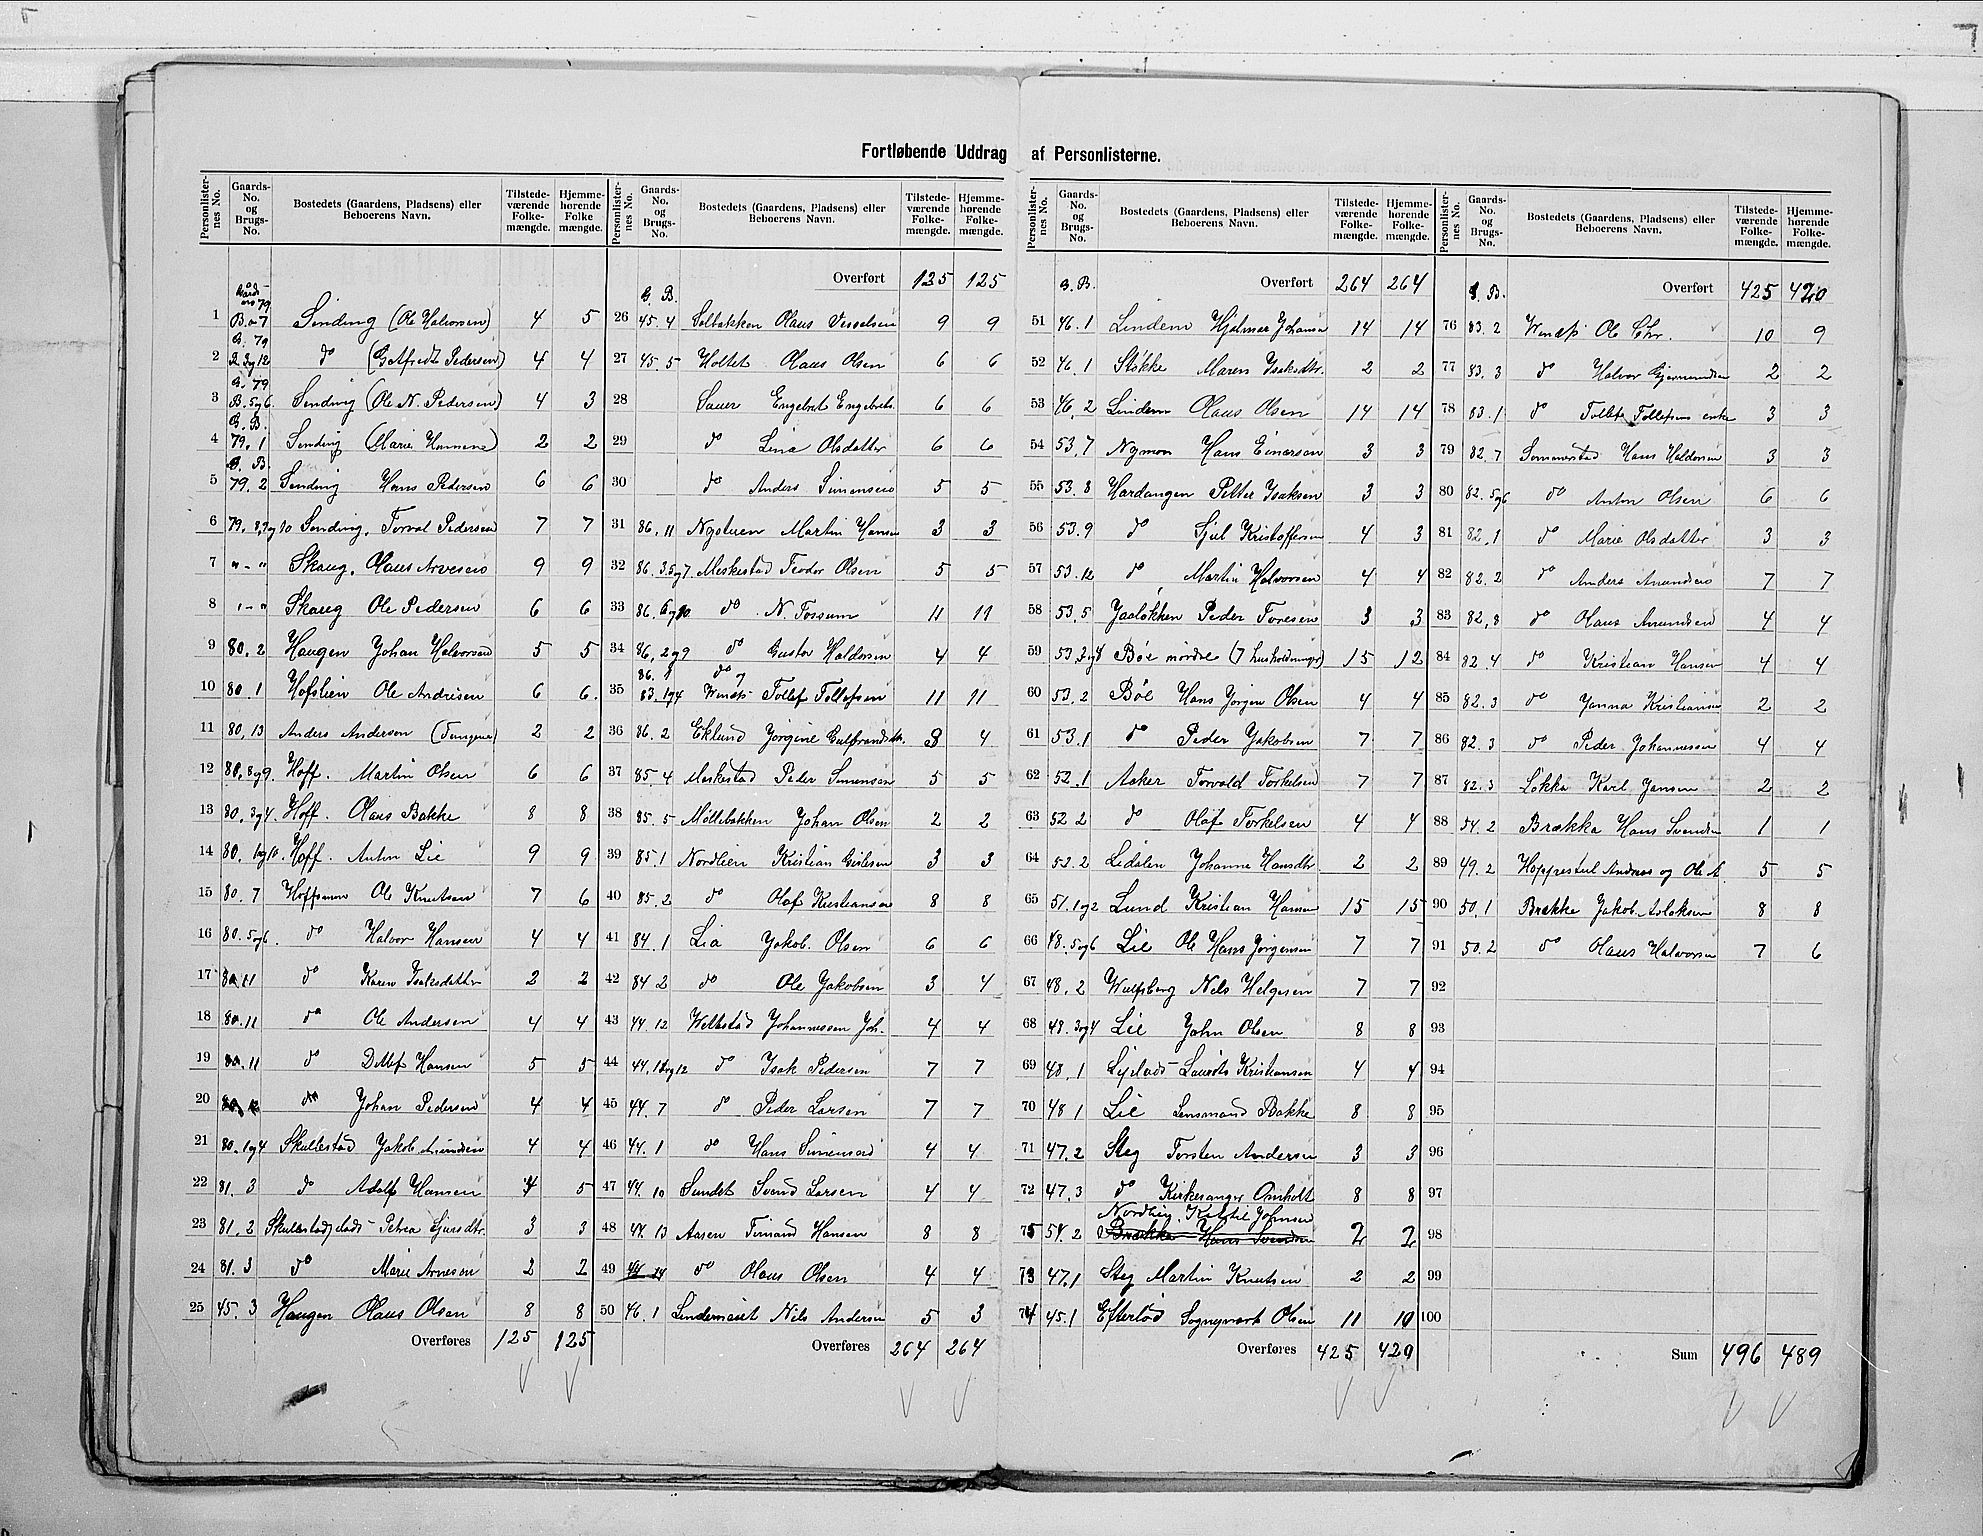 Fortløbende Uddrag af Personlisterne.
Personlister-nes No. Gaards-No. og Brugs-No. Bostedets (Gaardens, Pladsens) eller Beboerens Navn. Tilstede-værende Folke-mængde. Hjemme-hørende Folke mængde.
G. 79
1 B. 7 Sinding (Ole Halvorsen) 4 5
G. 79
2 do Pedersen) 4 4
G. 79
3 B. 5og6. Sinding (Ole N. Pedersen) 4 3
G. B.
4 79. 1 Sinding (Marie 2 2
G. B.
5 79. 2 Sinding Hans Pedersen 6 6
6 79. Sinding. Torval Pedersen 7 7
7 " - " Skaug. Olaus Arvesen 9 9
8 " - " Skaug Ole Pedersen 6 6
9 80. 2 Haugen Johan Halvorsen 5 5
10 80. 1 Hofslien Ole Andersen 6 6.
11 80, 13 Anders Anderson 2 2
12 80, 8og9. Hoff. Martin Olsen 6 6
13 80, 3og4. Hoff. Olaus Bakke 8 8
14 80. 1og10. Hoff. Anton Lie 9 9
15 80. 7 Ole Knutsen 7 6
16 80. 5og6. do Halvor Hansen 4 4
17 80. 11 do Karen Isaksdatter 2 2
18 80. 11 do Ole Andersen 4 4
19 80. 11 do Detlef Hansen 5 5
20 do Johan Pedersen 4 4
21 80. 1og4 Skullestad Jakob Amundsen 4 4
22 81. 3 do Adolf Hansen 4 5
23 81. 2 Petrea 3 3
24 81. 3 do Marie Arnesen 2 2
25 45. 3 Haugen Olaus Olsen 8 8
Overføres 125 125
Personlister-nes No. Gaards-No. og Brugs-No. Bostedets (Gaardens, Pladsens) eller Beboerens Navn. Tilstede-værende Folke-mængde. Hjemme-hørende Folke-mængde.
G. B. Overført 125 125
26 45. 4 Solbakken Olaus 9 9
27 45. 5 Holtet Olaus Olsen 6 6
28 Sauer Engebret Engebrets. 6 6
29 do Lina Olsdatter 6 6
30 do Anders Simensen 5 5
31 86. 11 Nystuen Martin Hansen 3 3
32 86. 3.5og7 Meskestad Teodor Olsen 5 5
33 86. do N. Fossum 11 11
34 86, 2og9 do Gustav Haldorsen 4 4
86. 8 do
35 83. 1og4 Tollef Tollefsen 11 11
36 86. 2 Eklund Jørgine Gulbrandsdtr. 3 4
37 85. 4 Meskestad Peder Simensen 5 5
38 85. 5 Møllebakken Johan Olsen 2 2
39 85. 1 Nordlien Kristian 3 3
40 85. 2 do Olaf Kristiansen 8 8
41 84. 1 Lia Jakob Olsen 6 6
42 84 2 do Ole Jakobsen 3 4
43 44. 12 Johannessen Joh. 4 4
44 do Isak Pedersen 7 7
45 44. 7 do Peder Larsen 7 7
46 44. 1 do Hans Simensen 4 4
47 44. 10 Sundet Svend Larsen 4 4
48 44. 13 Aasen Hansen 8 8
49 do Olaus Olsen 4 4
50 46. 1 Nils Andersen 5 3
Overføres 264 264
Personlister-nes No. Gaards-No. og Brugs-No. Bostedets (Gaardens, Pladsens) eller Beboerens Navn. Tilstede-værende Folke-mængde. Hjemme-hørende Folke-mængde.
G. B. Overført 264 264
51 46. 1 Lindem Hjalmar Johansen 14 14
52 46. 1 Støkke Maren Isaksdtr. 2 2
53 46. 2 Lindem Olaus Olsen 14 14
54 53. 7 Nymon Hans Einarsen 3 3
55 53. 8 Hardangen Petter Isaksen 3 3
56 53. 9 do Kristoffersen 4 3
57 53. 12 do Martin Halvorsen 4 4
58 53. 5 Peder Toresen 3 3
59 53. Bøe nordre (7 husholdninger) 15 12
60 53. 2 Bøe Hans Jørgen Olsen 4 4
61 53. 1 do Peder Jakobsen 7 7
62 52. 1 Aaker Torvald Torkelsen 7 7
63 52 2 do Olaf Torkelsen 4 4
64 52. 2 Lidalen Johanne Hansdtr 2 2
65 51. 1og2 Lund Kristian Hansen 15 15
66 48. 5og6 Lie Ole Hans Jørgensen 7 7
67 48. 2 Wulfsberg Nils Helgesen 7 7
68 48. 3og4 Lie John Olsen 8 8
69 48. 1 Laurits Kristiansen 4 4
70 48 1 Lie Lensmand Bakke 8 8
71 47. 2 Steg Torsten Andersen 3 3
72 47. 3 do Kirkesanger Omholt 8 8
Johnsen
75 54. 2 Brække Hans Svendsen 2 2
73 47. 1 Steg Martin Knutsen 2 2
74 45. 1 Efteløt Sogneprest Olsen 11 10
Overføres 425 420
Personlister-nes No. Gaards-No. og Brugs-No. Bostedets (Gaardens, Pladsens) eller Beboerens Navn. Tilstede-værende Folke-mængde. Hjemme-hørende Folke-mængde.
G. B. Overført 425 420
76 83. 2 Ole Chr. 10 9
77 83. 3 do Halvor Gjermundsen 2 2
78 83. 1 do Tollef Tollefsens enke 3 3
79 82. 7 Sommerstad Hans Haldorsen 3 3
80 82. 5og6 do Anton Olsen 6 6
81 82. 1 do Marie Olsdatter 3 3
82 82. 2 do Anders Amundsen 7 7
83 82, 8 do Olaus Amundsen 4 4
84 82. 4 do Kristian Hansen 4 4
85 82. 3 do Janna Kristiansen 2 2
86 82. 3 do Peder Johannessen 4 4
87 82. 3 Løkka Karl Jansen 2 2
88 54. 2 Brækka Hans Svendsen 1 1
89 49. 2 Hoppestul Andreas og Ole A. 5 5
90 50. 1 Brække Jakob Aslaksen 8 8
91 50. 2 do Olaus Halvorsen 7 6
92
93
94
95
96
97
98
99
100
Sum 496 489